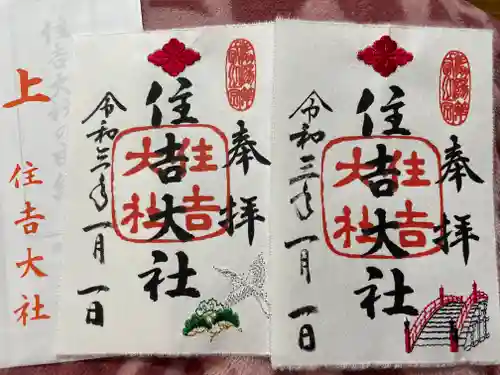 奉拝
住吉大社
住吉大社
令和三年一月一日
奉拝
住吉大社
住吉大社
令和三年一月一日
上
住吉大社